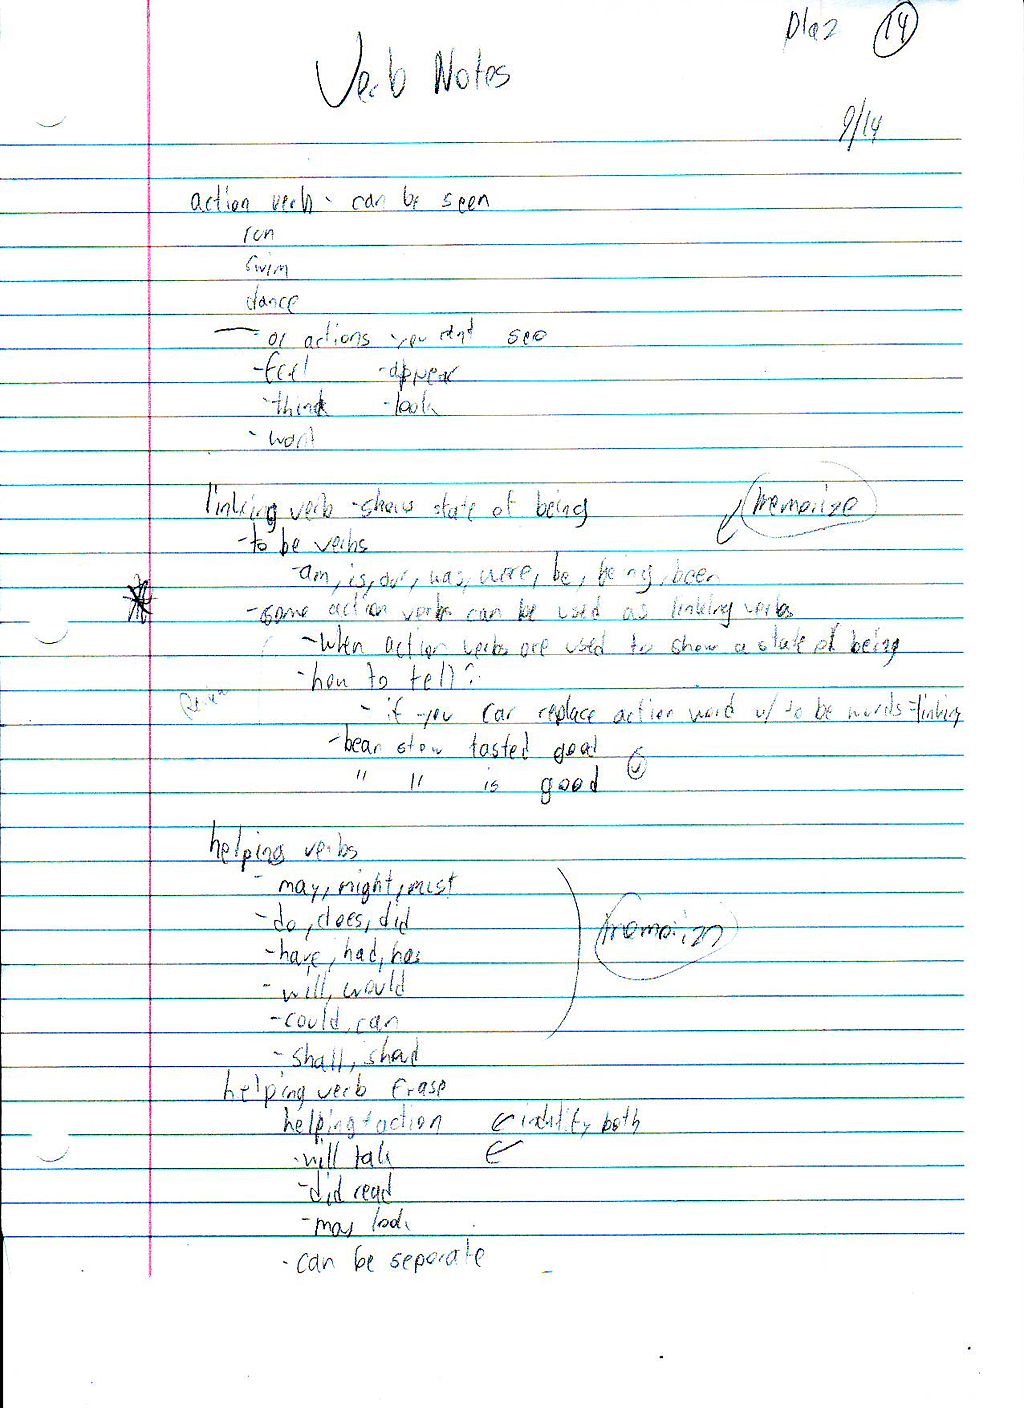 14
Verb Notes
9/14
action verb - can be seen
run
swim
dance
- or actions you cant see
- feel - appear
- think - look
- want
linking verb - show state of being memorize
- to be verbs
- am, is, are, was, were, be, being, been
- some action verbs can be used as linking verbs
- when action verbs are used to show a state of being
- how to tell?
- if you can replace action word w/ to be words = linking
- bean stew tasted good
" " is good
helping verbs
- may, might, must
- do, does, did
- have, had, has memorize
- will, would
- could, can
- shall, shoud
helping verb frase
helping + action ← indtify both
- will talk ←
- did read
- may look
- can be separate